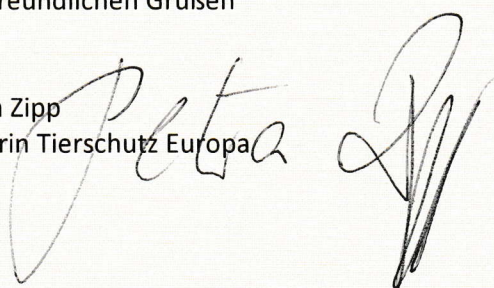 freundlichen Grüßen
a Zipp
rin Tierschutz Europa
Petra